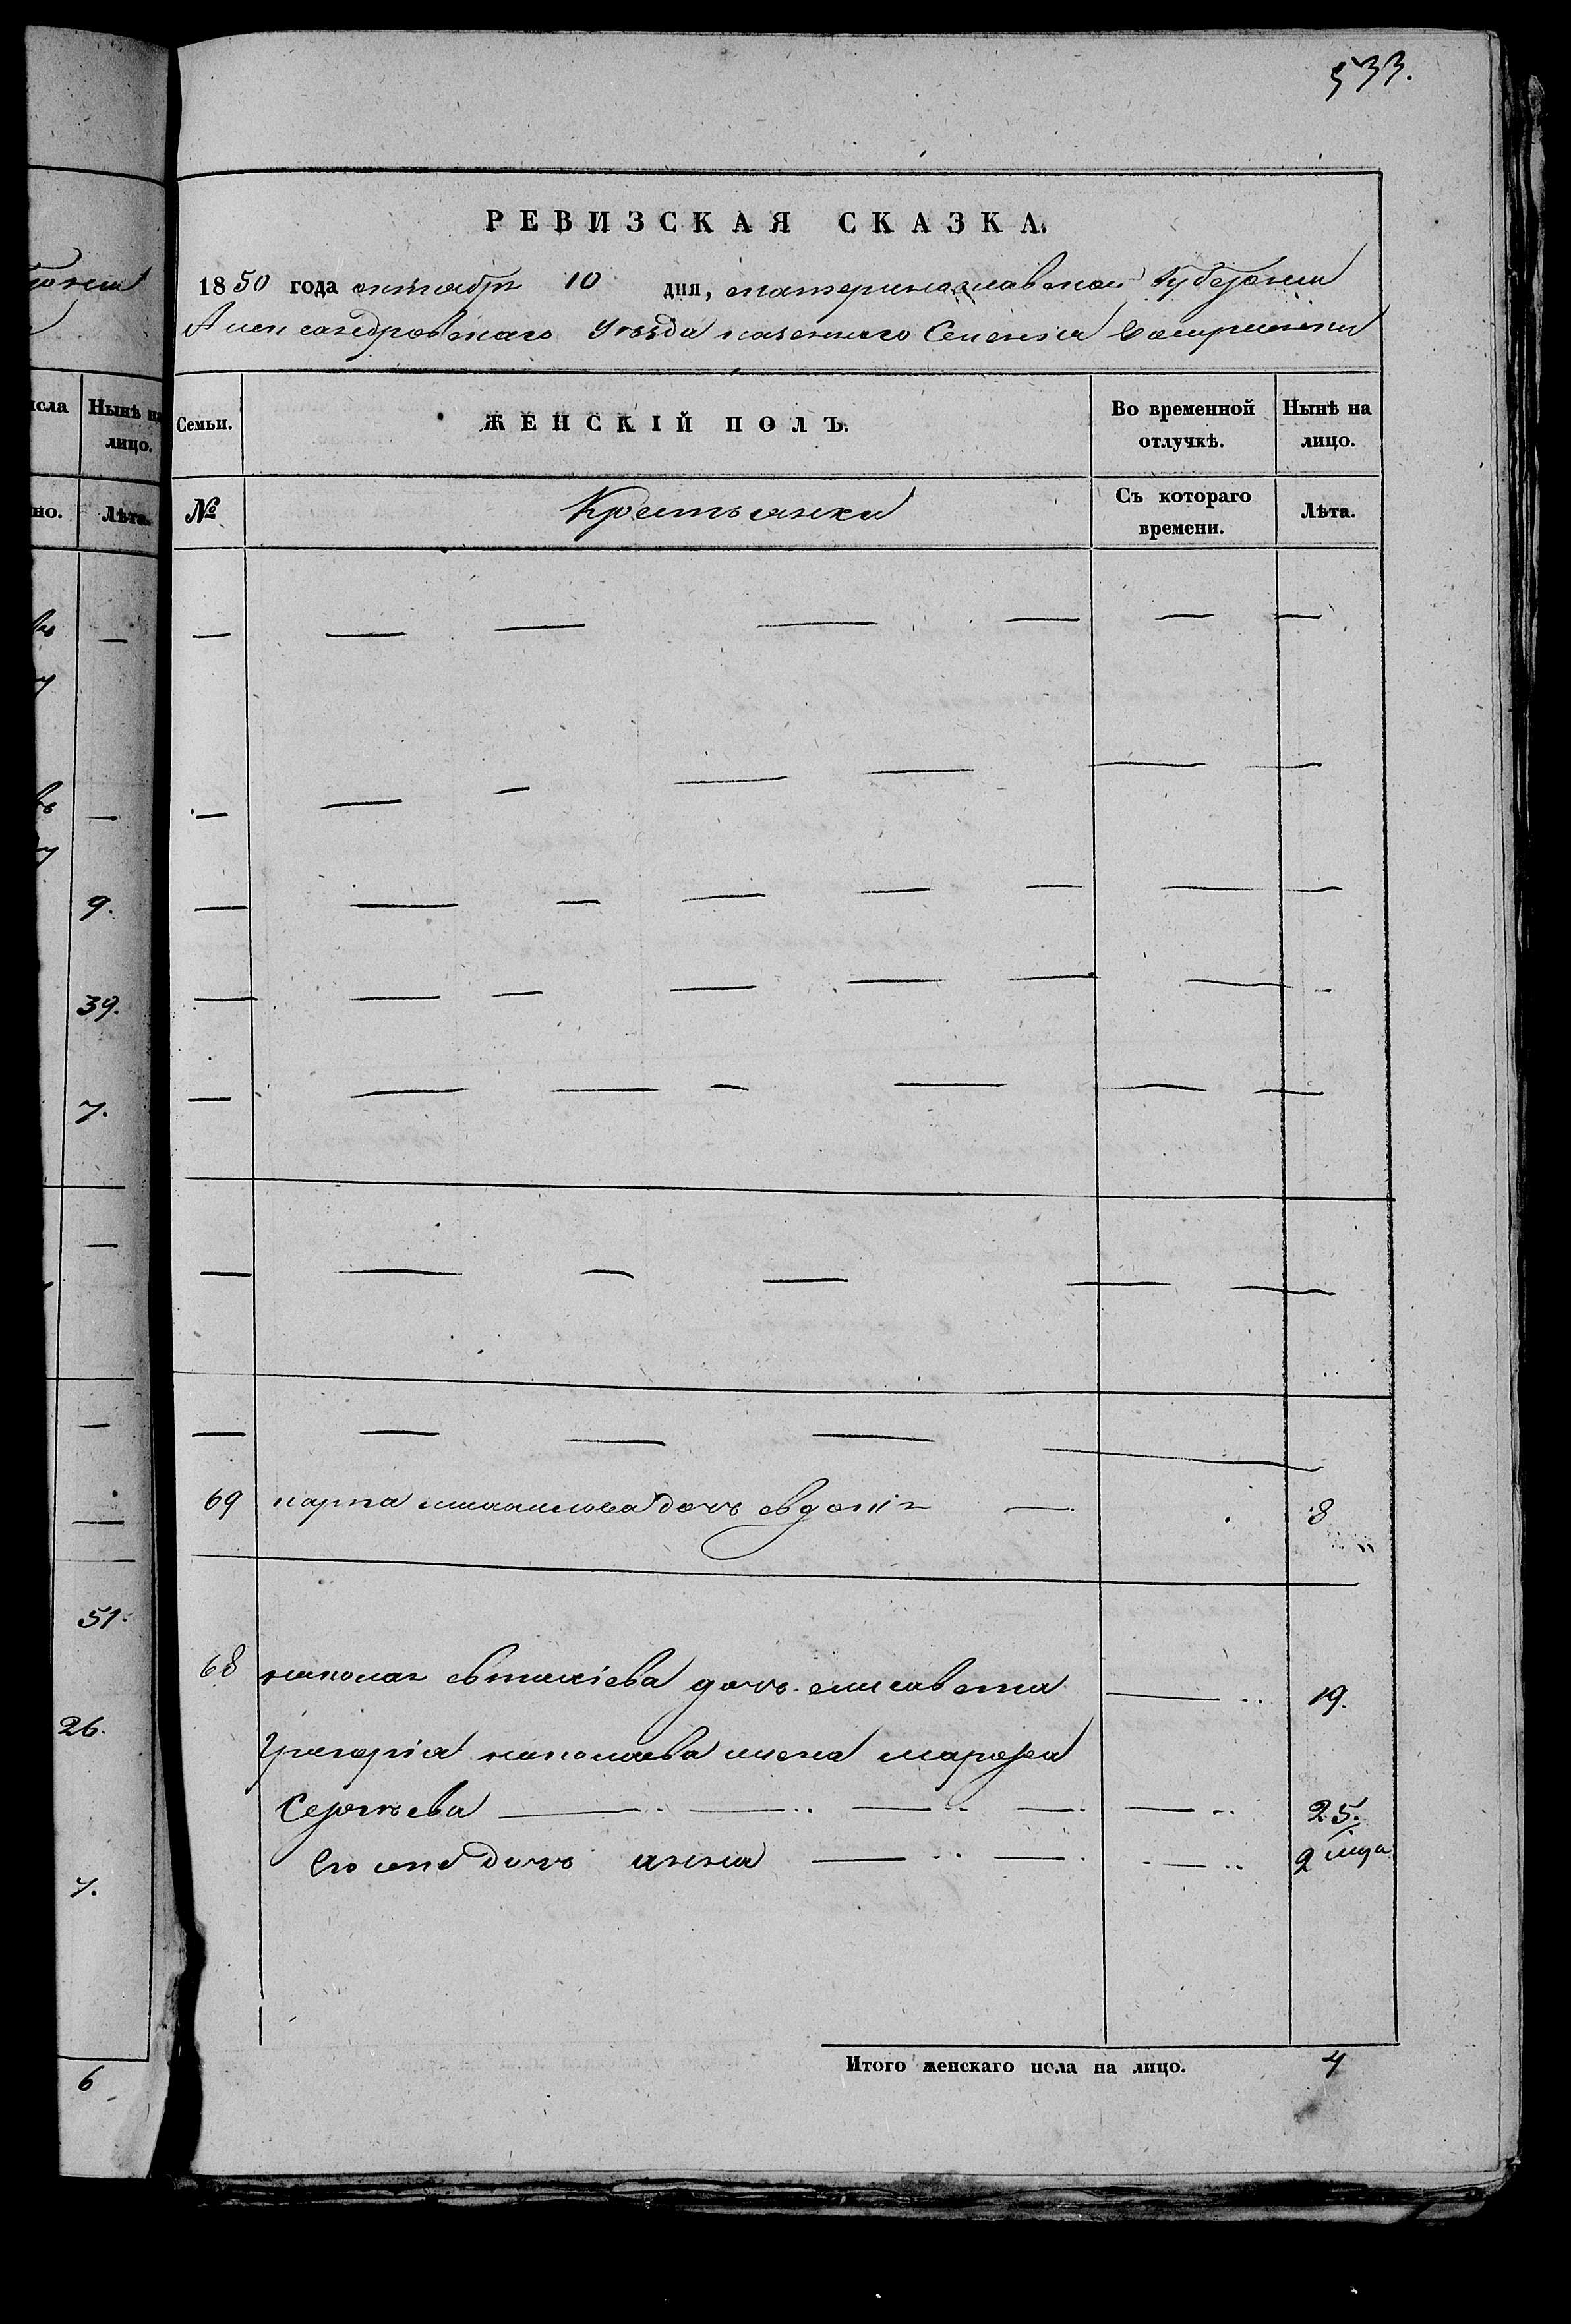 533.
РЕВИЗСКАЯ СКАЗКА.
1850 года октября 10 дня, екатеринославской губернии
Александровскаго уѣзда казеннаго селенія
Семьи.
ЖЕНСКІЙ ПОЛЪ.
Во временной отлучкѣ.
Нынѣ на лицо.
№
Крестьянки
Съ котораго времени.
Лѣта.
69 карпа дочь евдокія 8
68 николая евтихіева дочь елисавета 19.
григорія николаева жена марфа
Сергѣева 25.
его дочь анна 2 мца
Итого женскаго пола на лицо. 4
исла
Нынѣ на
лицо.
но.
Лѣта.
9.
39.
7.
51.
26.
7.
6